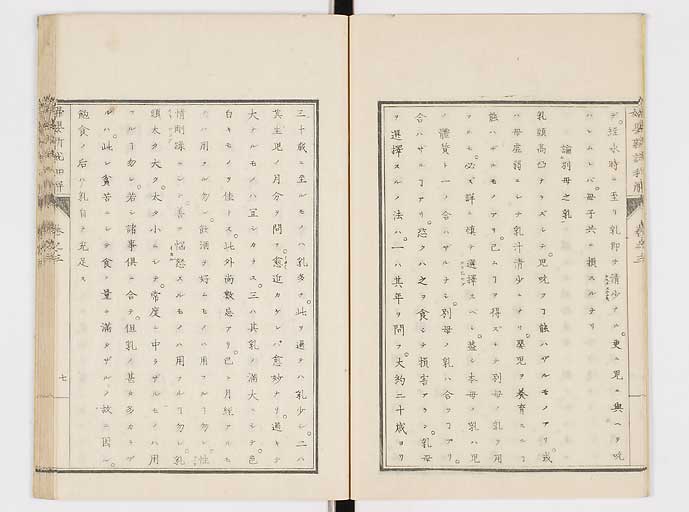 テ。經水時ニ至リ乳即チ清少ナル。更ニ兒ニ與ヘテ吮
ハシムレバ。母子共ニ損スルナリ
論別母之乳
乳頭高凸ナラズシテ。兒吮フヿ能ハザルモノアリ。或
ハ母虚弱ニシテ乳汁清少ニシテ。嬰兒ヲ養育スルヿ
能ハザルモノアリ。已ムヿヲ得ズシテ別母ノ乳ヲ用
フルモ。必ズ詳ニ慎テ選擇スベシ。蓋シ本母ノ乳ハ兒
ノ體質ト一ノ合ハザルナシ。別母ノ乳ハ合フヿアリ。
合ハザルヿアリ。恐クハ之ヲ食シテ損害アラン。乳母
ヲ選擇スルノ法ハ。一ハ其年ヲ問フ。大約二十歳ヨリ
三十歳ニ至ルモノハ乳多ク。此ヲ過テハ乳少シ。二ハ
其生児ノ月分ヲ問フ。愈近カケレバ愈妙ナリ。過キテ
大ナルモノハ宜シカラス。三ハ其乳ノ滿大ニシテ。色
白キモノヲ佳トス。此外尚數忌アリ。已ニ月經アルモ
ノハ用フル勿レ。飲酒ヲ好ムモノハ用フルヿ勿レ。性
情剛躁ニシテ。善ク惱怒スルモノハ用フルヿ勿レ。乳
頭太タ大。太タ小ムシテ。常度ニ中ラザルモノハ用
フルヿ勿レ。若シ諸事倶ニ合テ。但乳ノ甚タ多カラザ
ルハ。此レ貧苦ニシテ食ノ量ニ滿タザルノ故ニ因ル。
飽食ノ后ハ乳自ラ充足ス
卷之三
七